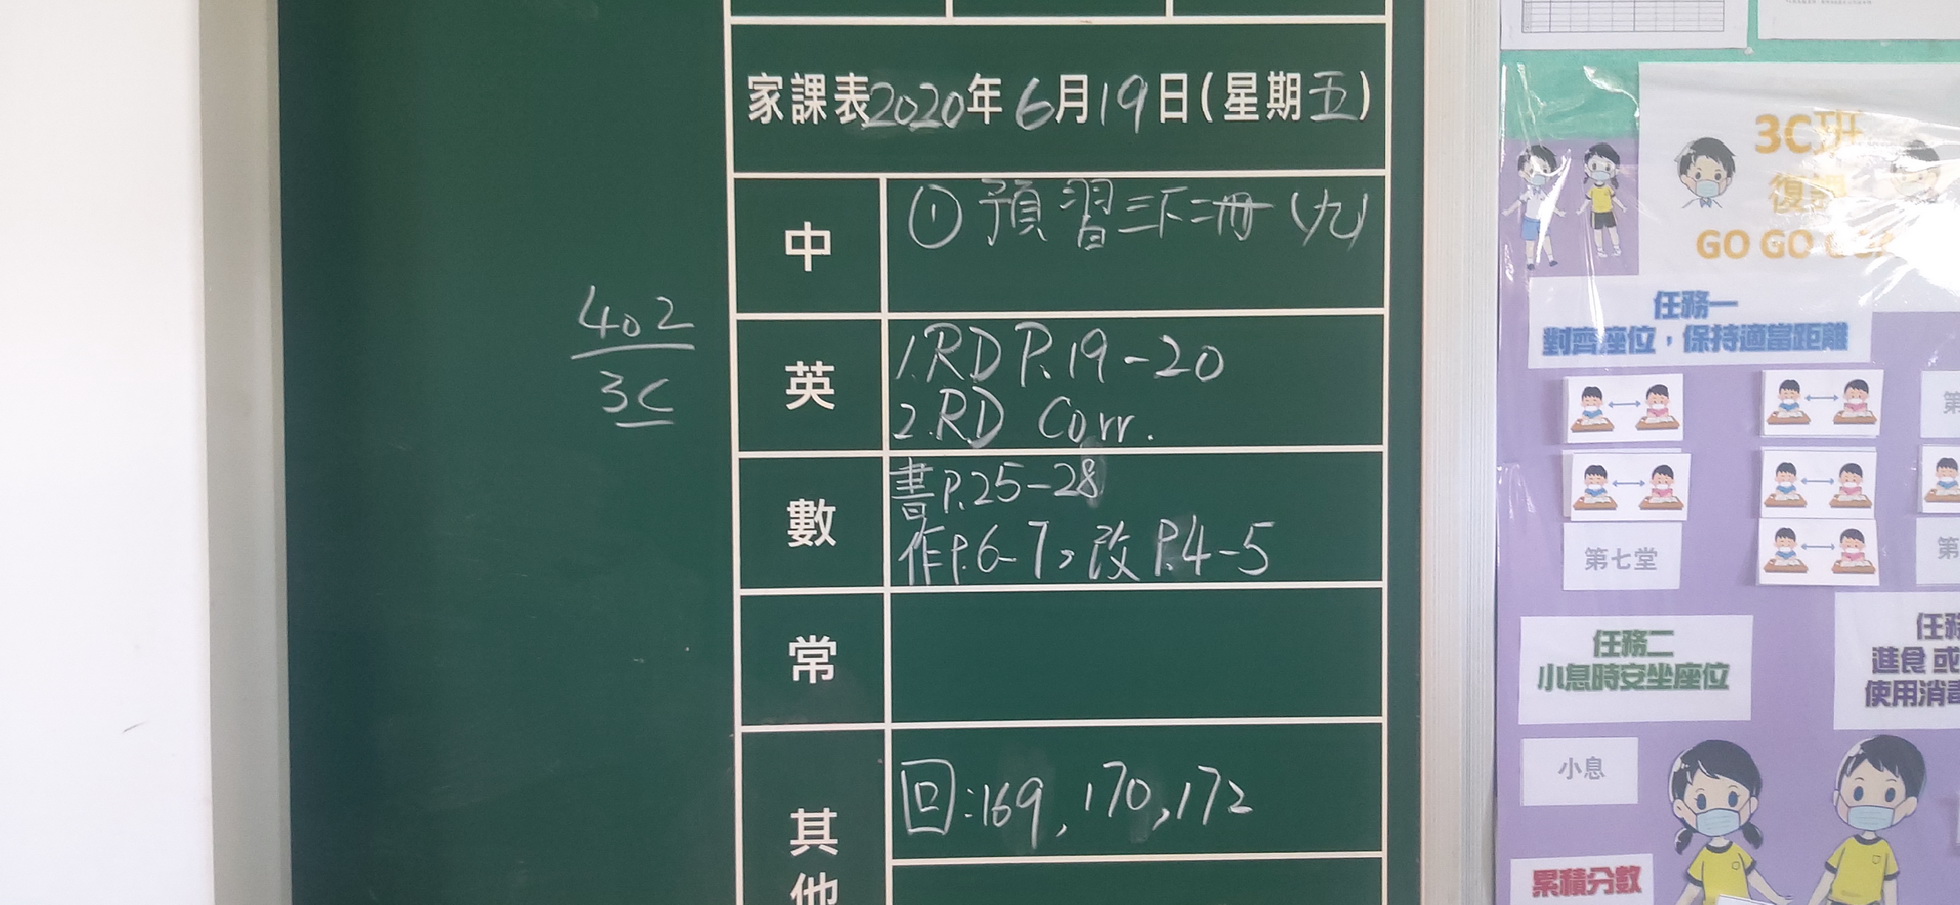 家課表2020年6月19日(星期五)
中
① 預習三下二冊(九)
402
3C
英
1.RD P.19-20
2.RD Corr.
數
書P.25-28
作P.6-7,改P.4-5
常
其他
回:169,170,172
3C班
復課
GO GO
任務一
對齊座位,保持適當距離
第七堂
任務二
小息時安坐座位
進食 或
使用消毒
小息
累積分數